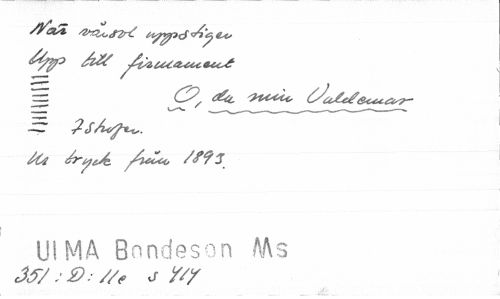 När vårsol uppstiger
Upp till firmament
O, du min Valdemar
7 strofer.
Ur tryck från 1893.
ULMA Bondeson Ms
351 : D : 11e s 414